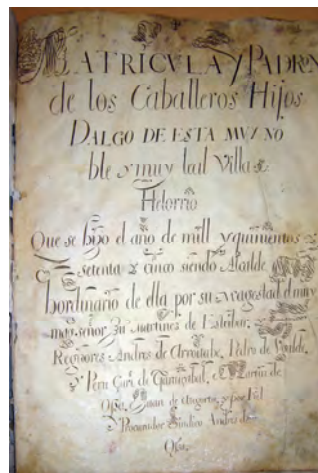 MATRICVLA Y PADRON
de los Caballeros Hijos
DALGO DE ESTA MVY NO
ble y muy leal Villa de
Helorrio
Que se hizo el año de mill y quinientos
setenta y cinco siendo Alcalde
hordinario de ella por su Magestad el muy
señor Martines de Estibar
Regidores Andres de Arrouabe, Pedro de
Y Peru
Juan de
Y Procurador Sindico Andres de